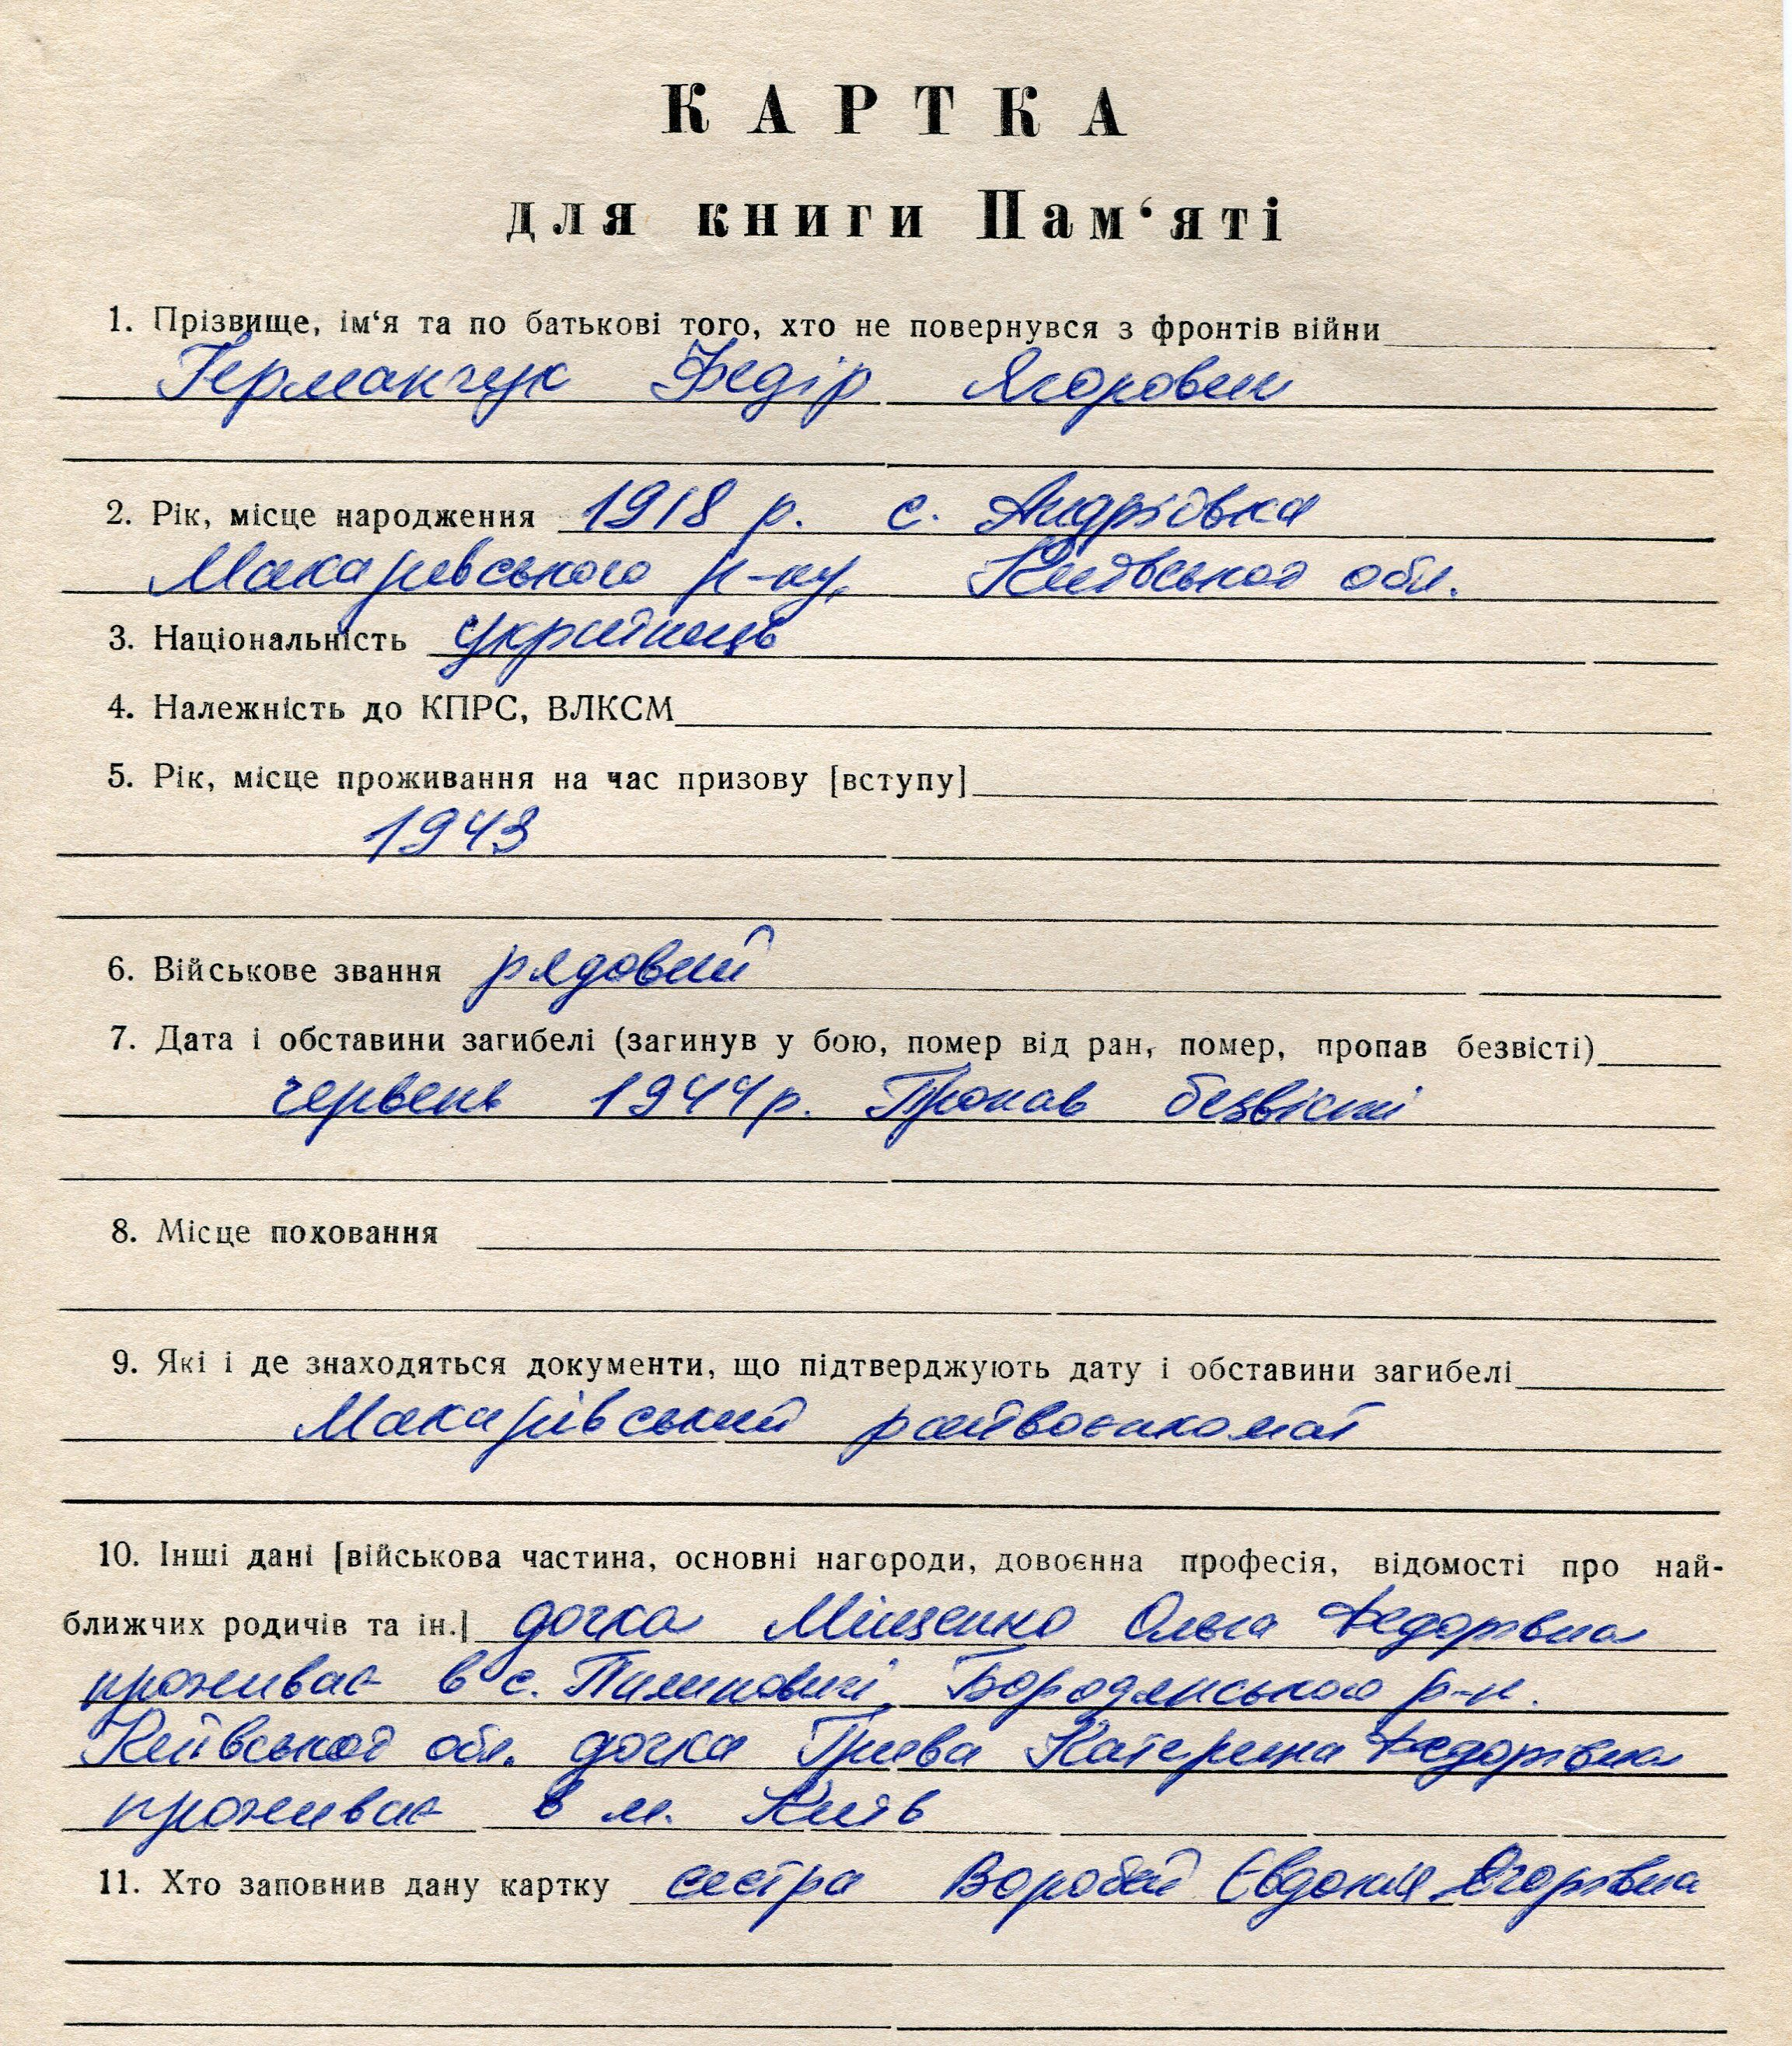 КАРТКА
для книги Пам‘яті
1. Прізвище, ім‘я та по батькові того, хто не повернувся з фронтів війни
Германчук Федір Ягорович
2. Рік, місце народження 1918 р. с. Андріївка
Макарівського р-ну, Київської обл.
3. Національність українець
4. Належність до КПРС, ВЛКСМ
5. Рік, місце проживання на час призову [вступу]
1943
6. Військове звання рядовий
7. Дата і обставини загибелі (загинув у бою, помер від ран, помер, пропав безвісті)
червень 1944 р. Пропав безвісті
8. Місце поховання
9. Які і де знаходяться документи, що підтверджують дату і обставини загибелі
Макарівський райвоєнкомат
10. Інші дані [військова частина, основні нагороди, довоєнна професія, відомості про най-
ближчих родичів та ін.] дочка Міщенко Ольга Федорівна
проживає в с. Пилиповичі, Бородянського р-н.
Київської обл. дочка Грива Катерина Федорівна
проживає в м. Київ
11. Хто заповнив дану картку сестра Воробей Євдокія Ягорівна